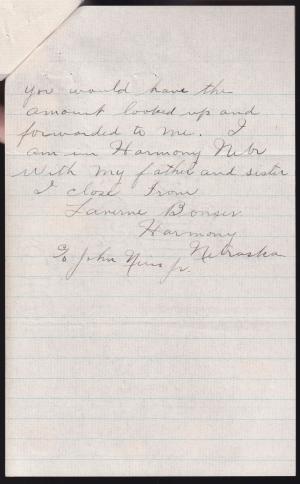 you would have the
amount looked up and
forwarded to me. I
am in Harmony Nebr
with my father and sister
I close from
Laverne Bonser
Harmony
Nebraska
℅ John Jr.